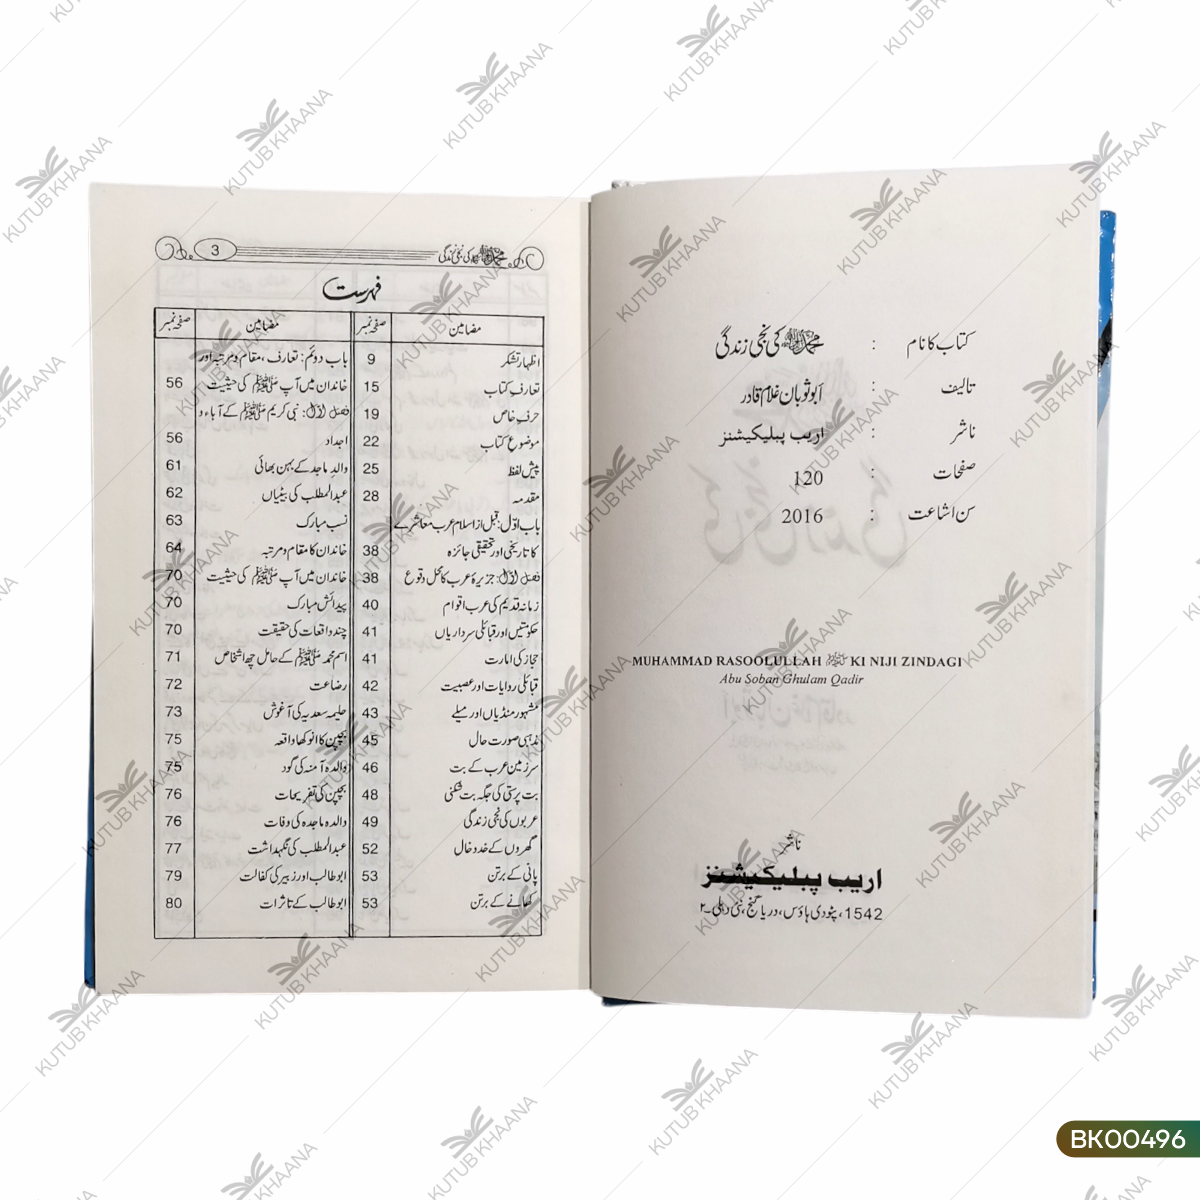 کتاب کا نام : محمد رسول اللہ ﷺ کی نجی زندگی
تالیف : ابو ثوبان غلام قادر
ناشر : اریب پبلیکیشنز
صفحات : 120
سن اشاعت : 2016
MUHAMMAD RASOOLULLAH ﷺ KI NIJI ZINDAGI
Abu Soban Ghulam Qadir
ناشر
اریب پبلیکیشنز
1542، پٹودی ہاؤس، دریا گنج، نئی دہلی۔۲
کی نجی زندگی 3
فہرست
مضامین صفحہ نمبر
اظہار تشکر 9
تعارف کتاب 15
حرفِ خاص 19
موضوع کتاب 22
پیش لفظ 25
مقدمہ 28
باب اوّل: قبل از اسلام عرب معاشرے
کا تاریخی اور تحقیقی جائزہ 38
فصل اوّل: جزیرۂ عرب کا محل وقوع 38
زمانہ قدیم کی عرب اقوام 40
حکومتیں اور قبائلی سرداریاں 41
حجاز کی امارت 41
قبائلی روایات اور عصبیت 42
مشہور منڈیاں اور میلے 43
مذہبی صورت حال 45
سرزمین عرب کے بت 46
بت پرستی کی جگہ بت شکنی 48
عربوں کی نجی زندگی 49
گھروں کے خدوخال 52
پانی کے برتن 53
کھانے کے برتن 53
مضامین صفحہ نمبر
باب دوئم: تعارف، مقام و مرتبہ اور
خاندان میں آپ ﷺ کی حیثیت 56
فصل اوّل: نبی کریم ﷺ کے آباء و
اجداد 56
والد ماجد کے بہن بھائی 61
عبدالمطلب کی بیٹیاں 62
نسب مبارک 63
خاندان کا مقام و مرتبہ 64
خاندان میں آپ ﷺ کی حیثیت 70
پیدائش مبارک 70
چند واقعات کی حقیقت 70
اسم محمد ﷺ کے حامل چھ اشخاص 71
رضاعت 72
حلیمہ سعدیہ کی آغوش 73
بچپن کا انوکھا واقعہ 75
والدہ آمنہ کی گود 75
بچپن کی تفریحات 76
والدہ ماجدہ کی وفات 76
عبدالمطلب کی نگہداشت 77
ابوطالب اور زبیر کی کفالت 79
ابوطالب کے تاثرات 80
KUTUB KHAANA
BK00496